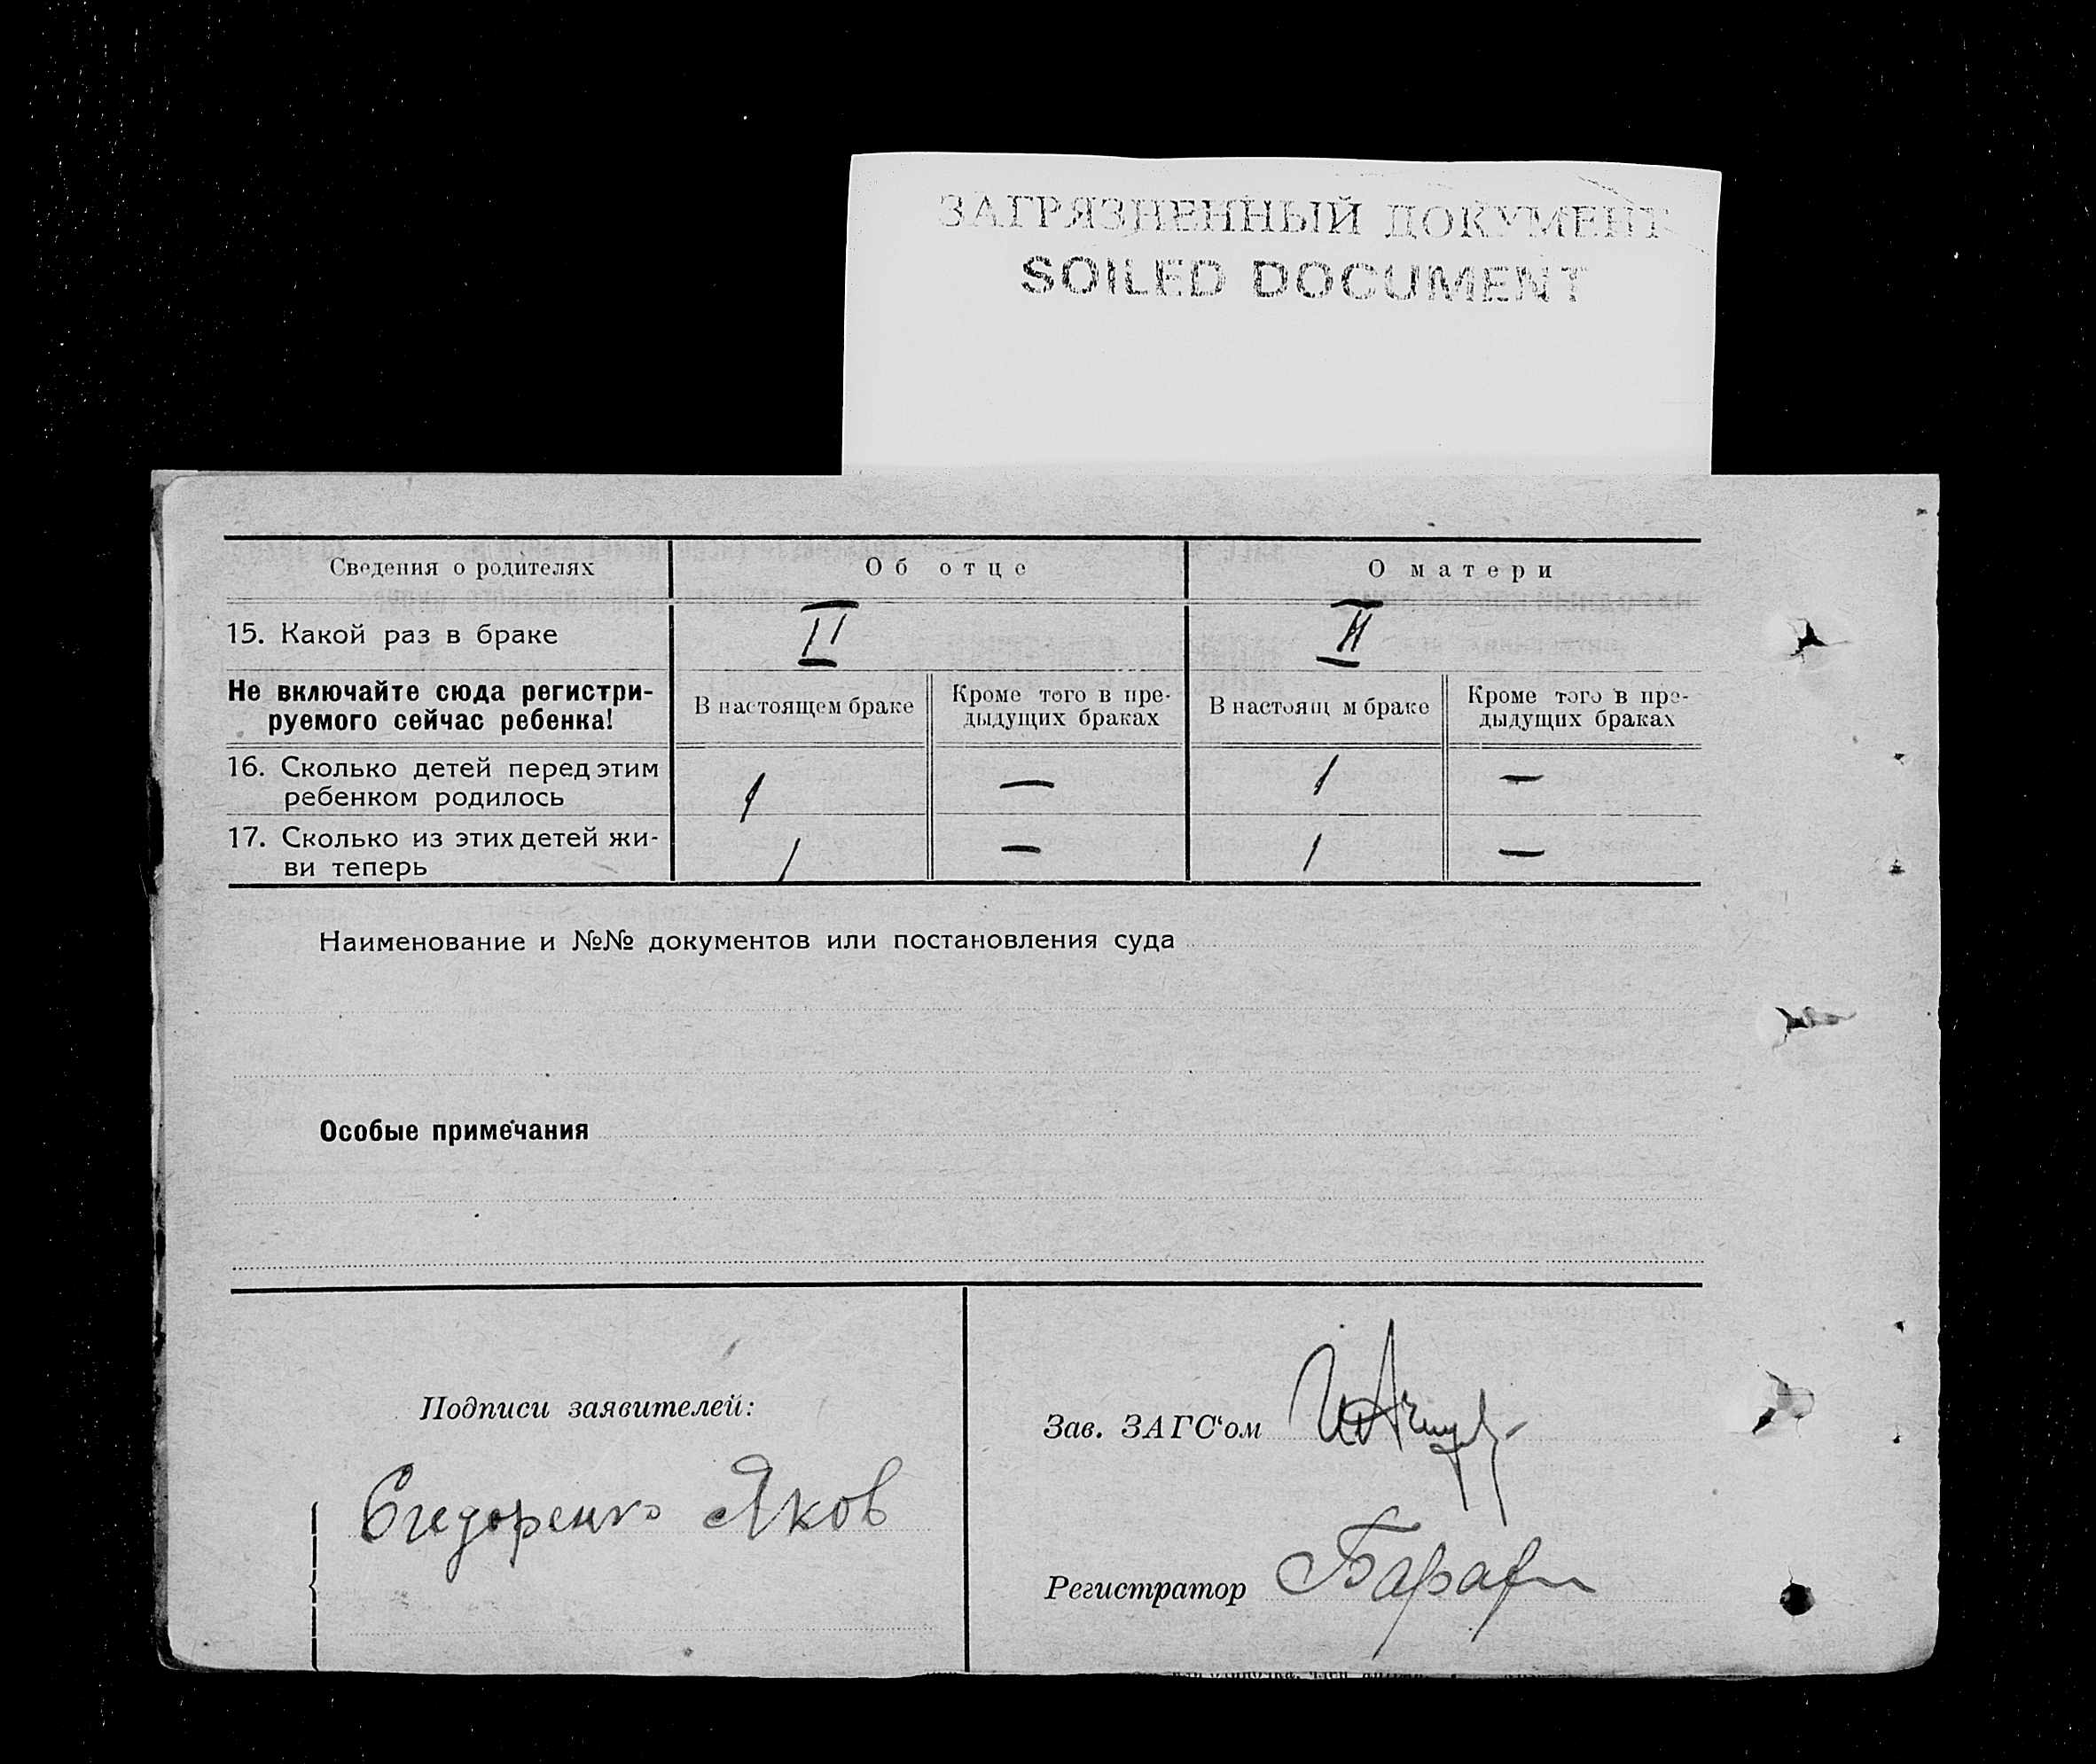 ЗАГРЯЗНЕННЫЙ ДОКУМЕНТ
SOILED DOCUMENT
Сведения о родителях Об отце О матери
15. Какой раз в браке II II
Не включайте сюда регистри-
руемого сейчас ребенка!
В настоящем браке
Кроме того в пре-
дыдущих браках
В настоящ м браке
Кроме того в пре-
дыдущих браках
16. Сколько детей перед этим
ребенком родилось 1 — 1 —
17. Сколько из этих детей жи-
ви теперь 1 — 1 —
Наименование и №№ документов или постановления суда
Особые примечания
Подписи заявителей:
Яков
Зав. ЗАГС'ом
Регистратор